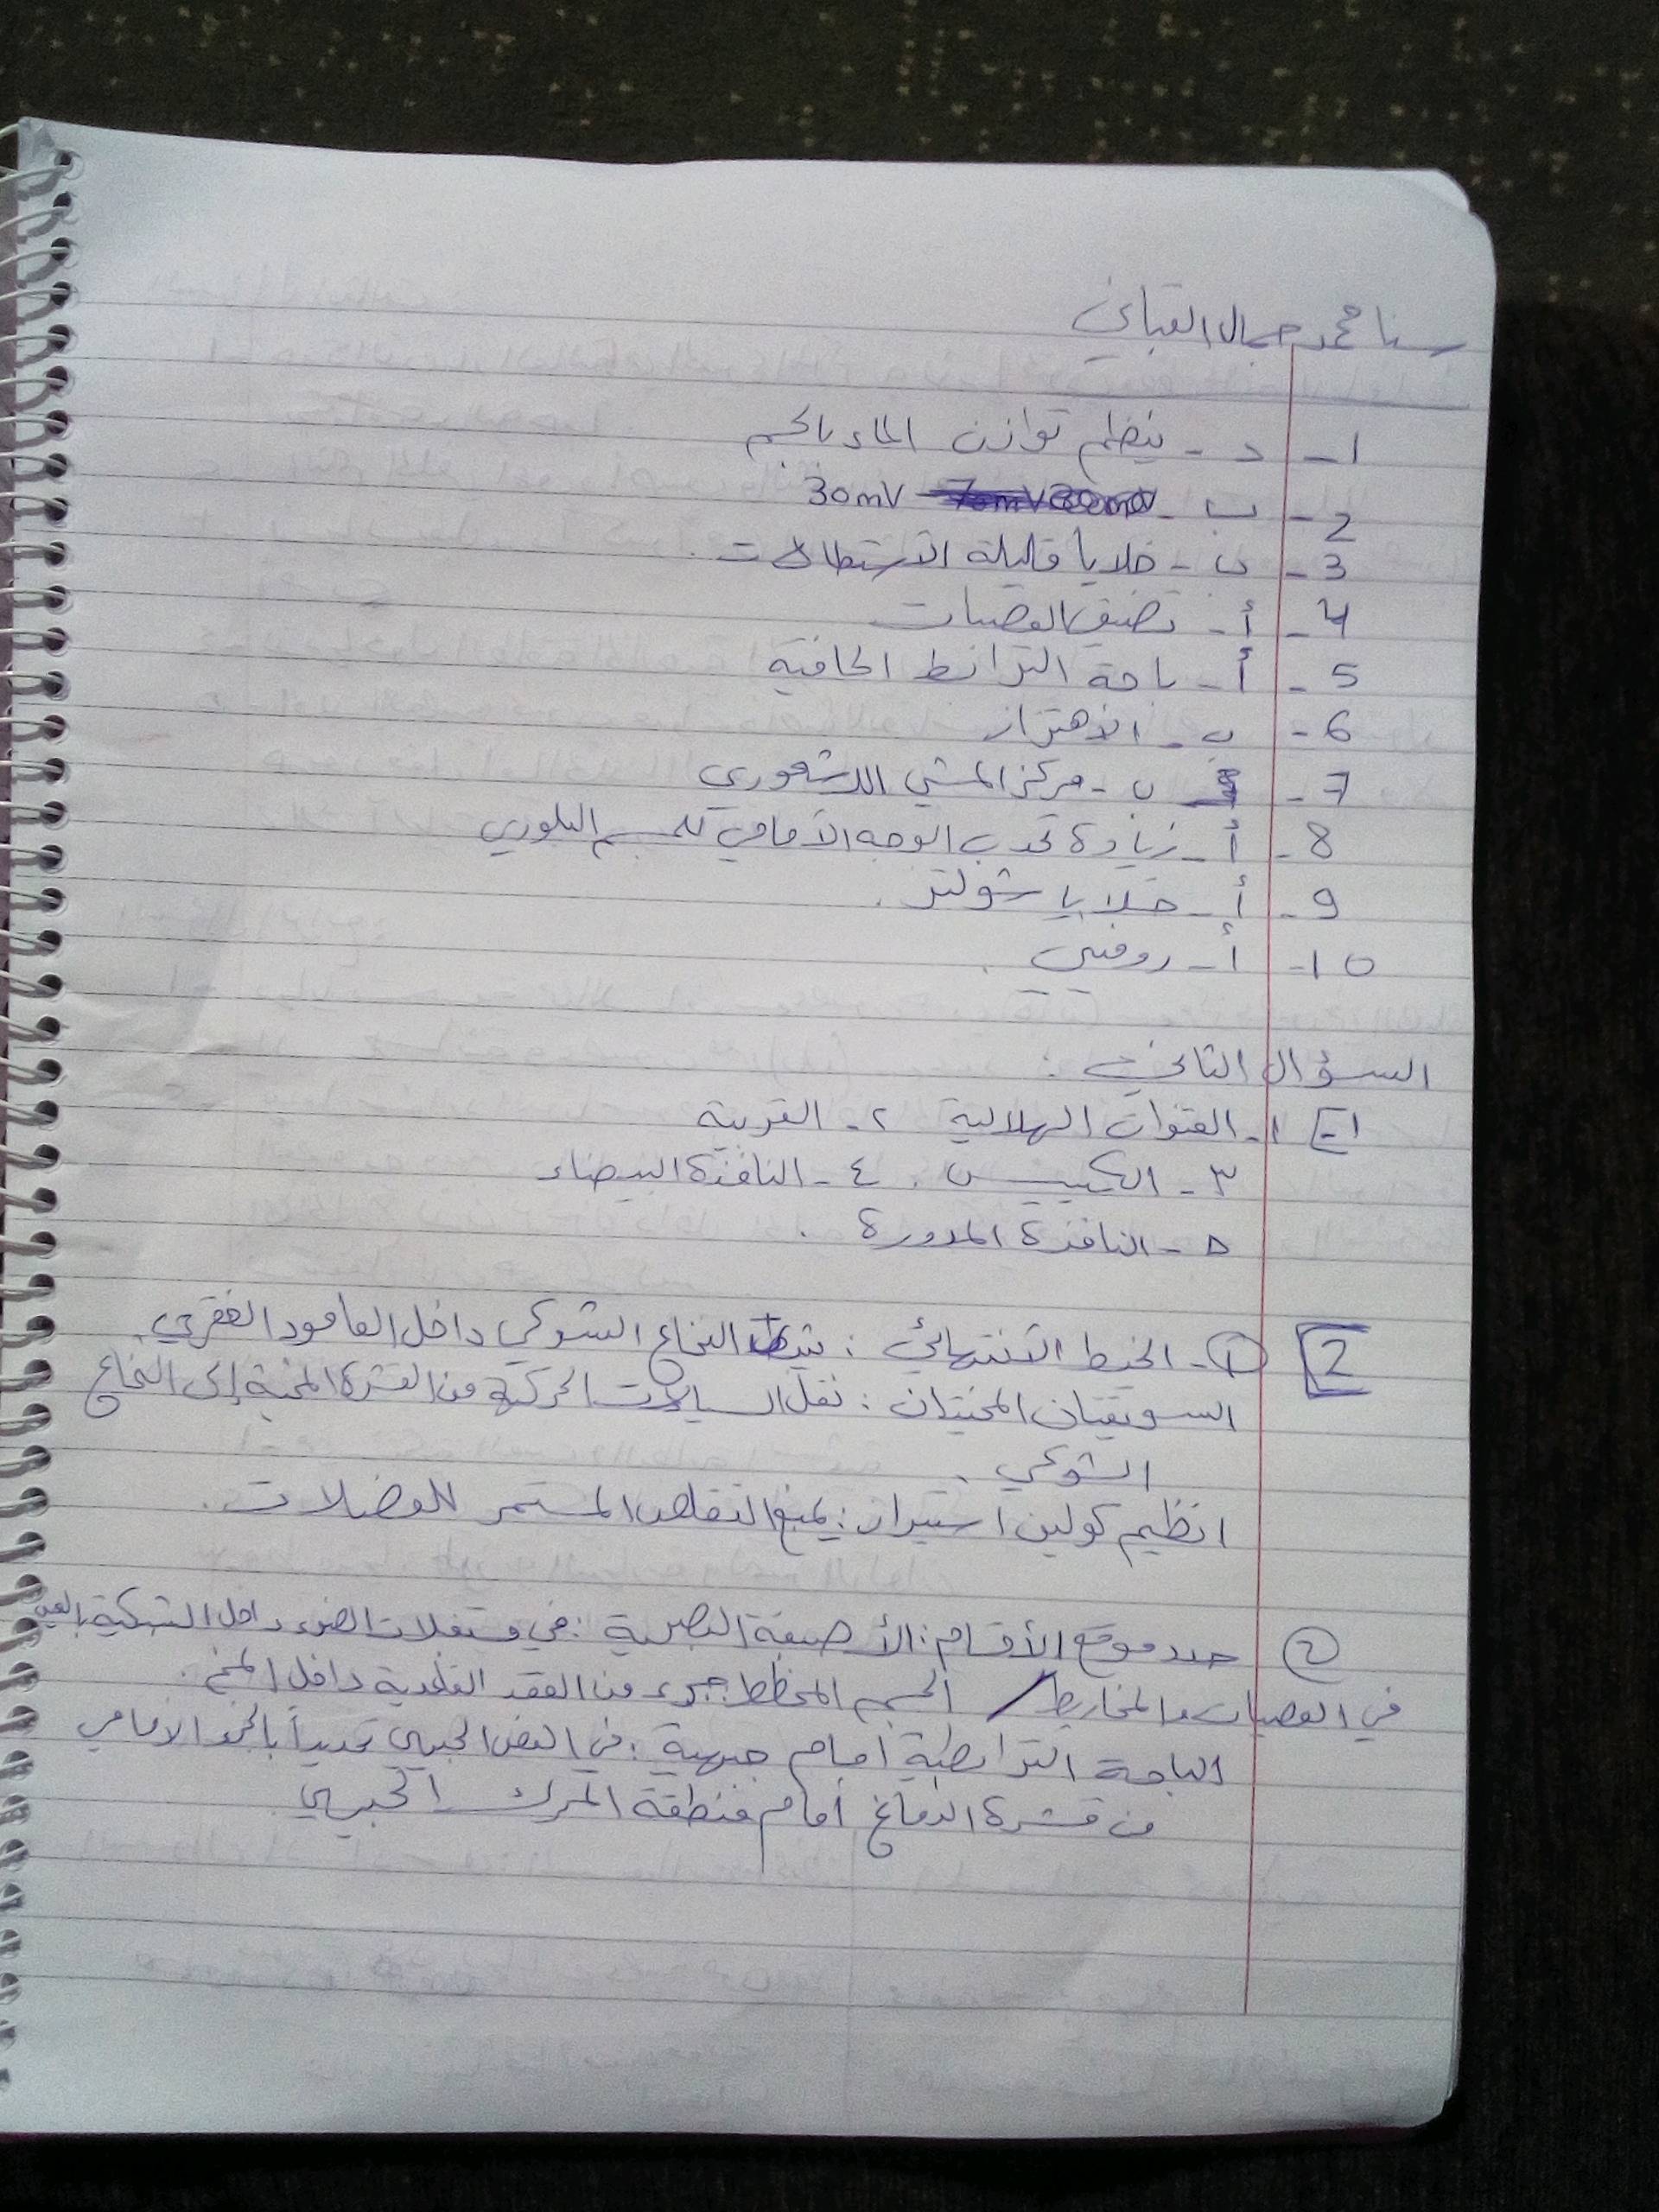 سنا محمد جمال القباني
1- د- ينظم توازن الماء بالجسم
2- ب- 30mV
3- ب- خلايا قليلة الاستطالات.
4- أ- تضيق القصبات
5- أ- باحة الترابط الحافية
6- ب- الاهتزاز
7- ب- مركز المشي اللاشعوري
8- أ- زيادة تحدب الوجه الأمامي للجسم البلوري
9- أ- خلايا شولتز.
10- أ- رودبسين.
السؤال الثاني:
1- ١- القنوات الهلالية ٢- القريبة
٣- الكييس. ٤- النافذة البيضاء
٥- النافذة المدورة.
2 ①- الخيط الانتهائي: يثبت النخاع الشوكي داخل العامود الفقري.
السويقتان المخيتان: نقل السيالات الحركية من القشرة المخية إلى النخاع
الشوكي.
انظيم كولين استيراز: يمنع التقلص المستمر للعضلات.
② حدد موقع الأقسام: الأصبغة البصرية: في مستقبلات الضوء داخل الشبكية بالعين
في العصيات والمخاريط / الجسم المخطط: جزء من العقد القاعدية داخل المخ.
الباحة الترابطية أمام جبهية: في الفص الجبهي تحديداً بالجزء الأمامي
من قشرة الدماغ أمام منطقة المحرك الجبهي